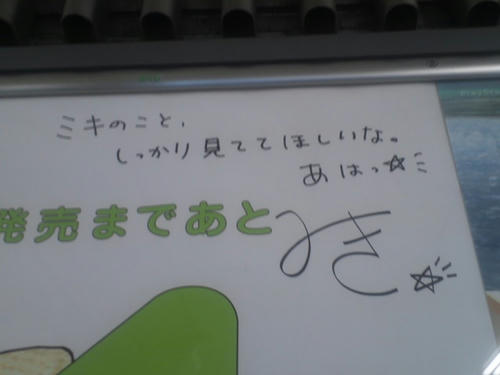 ミキのこと、
しっかり見ててほしいな。
あはっ☆
発売まであと
みき☆